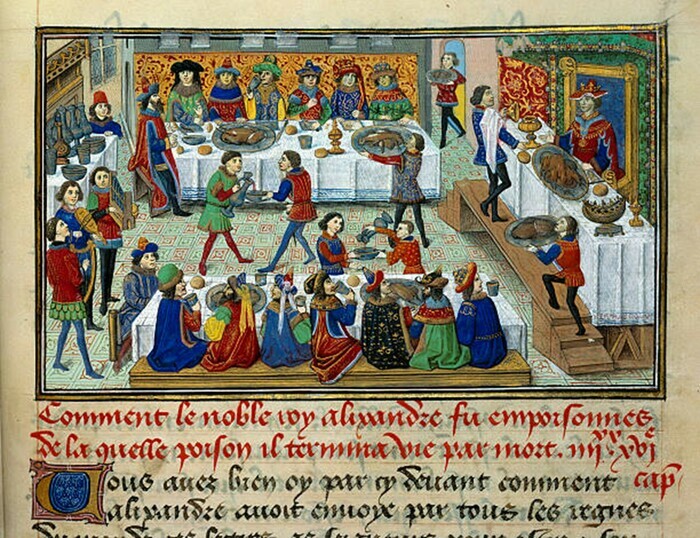 Comment le noble roy alixandre fu empoisonnes
de la quelle poison il termina vie par mort. iiij xx xvj e
cap
Vous avez bien oy par cy devant comment
alixandre avoit envoye par tous les regnes